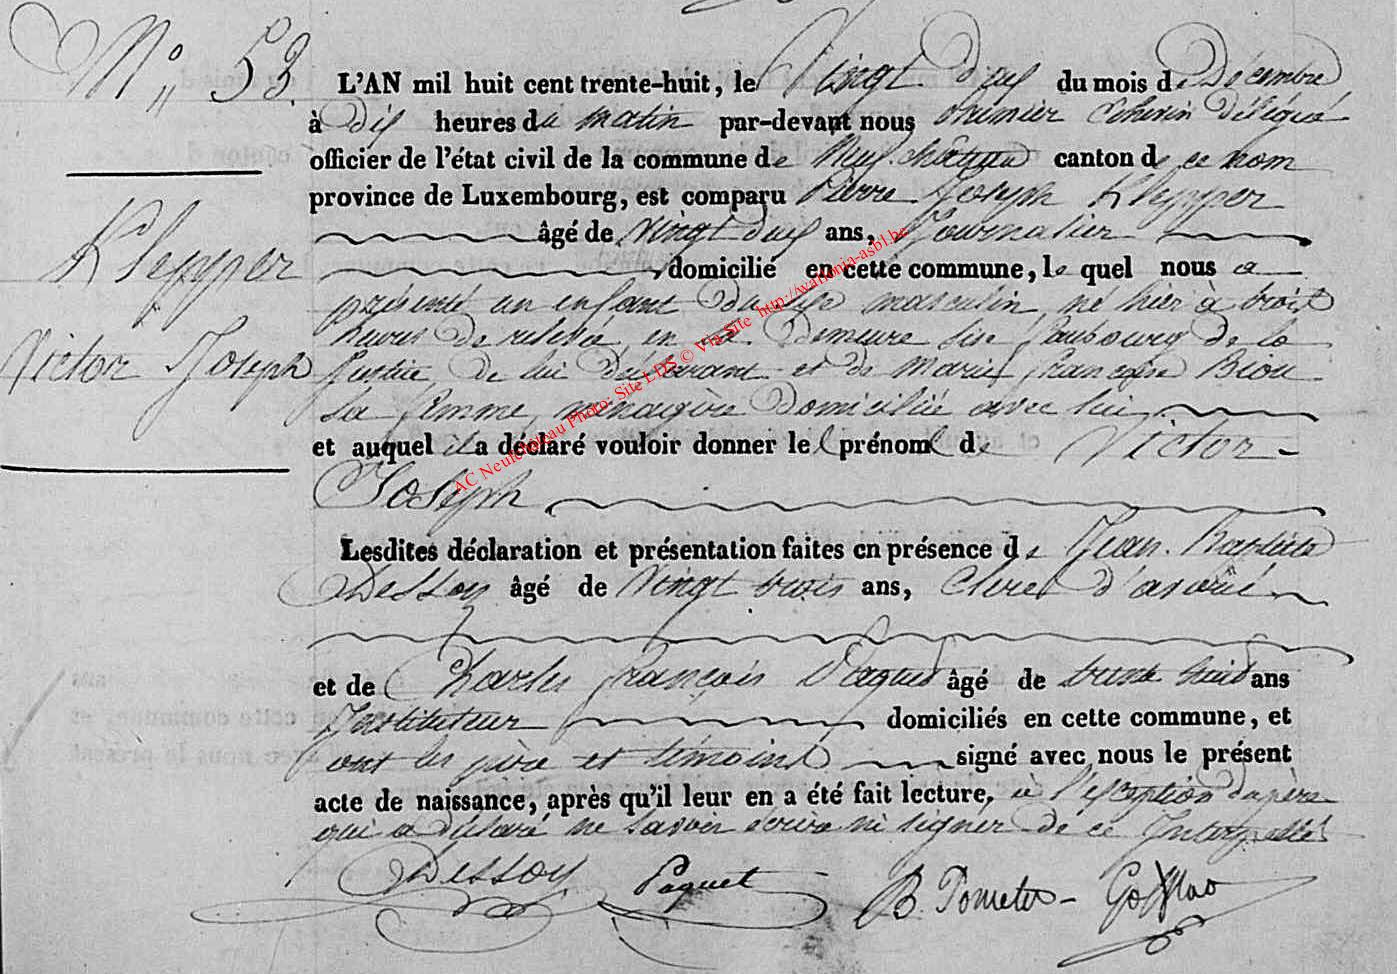 N° 53.
L'AN mil huit cent trente-huit, le Vingt Deux du mois de Décembre
à Dix heures du matin par-devant nous premier Echevin Délégué
officier de l'état civil de la commune de Neufchâteau canton de ce nom
province de Luxembourg, est comparu Pierre Joseph Klepper
âgé de Vingt Deux ans, Journalier
domicilié en cette commune, le quel nous a
présenté un enfant Du sexe masculin, né hier à trois
heures de relevée, en sa Demeure sise faubourg de la
Justice, De lui Déclarant et de Marie françoise Biou
sa femme, ménagère Domiciliée avec lui
et auquel il a déclaré vouloir donner le prénom de Victor
Joseph
Lesdites déclaration et présentation faites en présence de Jean-Baptiste
Dessoy âgé de Vingt trois ans, Clerc d'avoué
et de Charles françois Paquet âgé de trente huit ans
Instituteur domiciliés en cette commune, et
ont les père et témoins signé avec nous le présent
acte de naissance, après qu'il leur en a été fait lecture, à l'exception du père
qui a déclaré ne savoir écrire ni signer De ce Interpellé
Klepper
Victor Joseph
Dessoy Paquet B.
AC Neufchateau Photo: Site LDS © Via Site http://wallonia-asbl.be